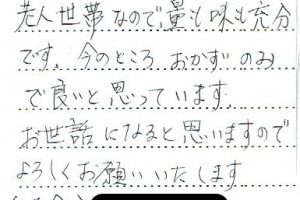 老人世帯なので量も味も充分
です。今のところ おかずのみ
で良いと思っています。
お世話になると思いますので
よろしくお願いいたします